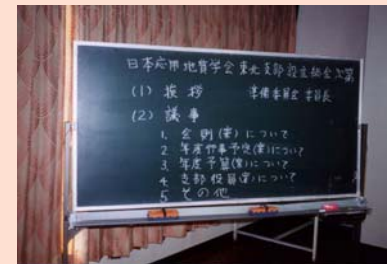 日本応用地質学会東北支部設立総会次第
(1) 挨拶 準備委員会 委員長
(2) 議事
1. 会則(案)について
2. 年度行事予定(案)について
3. 年度予算(案)について
4. 支部役員(案)について
5. その他